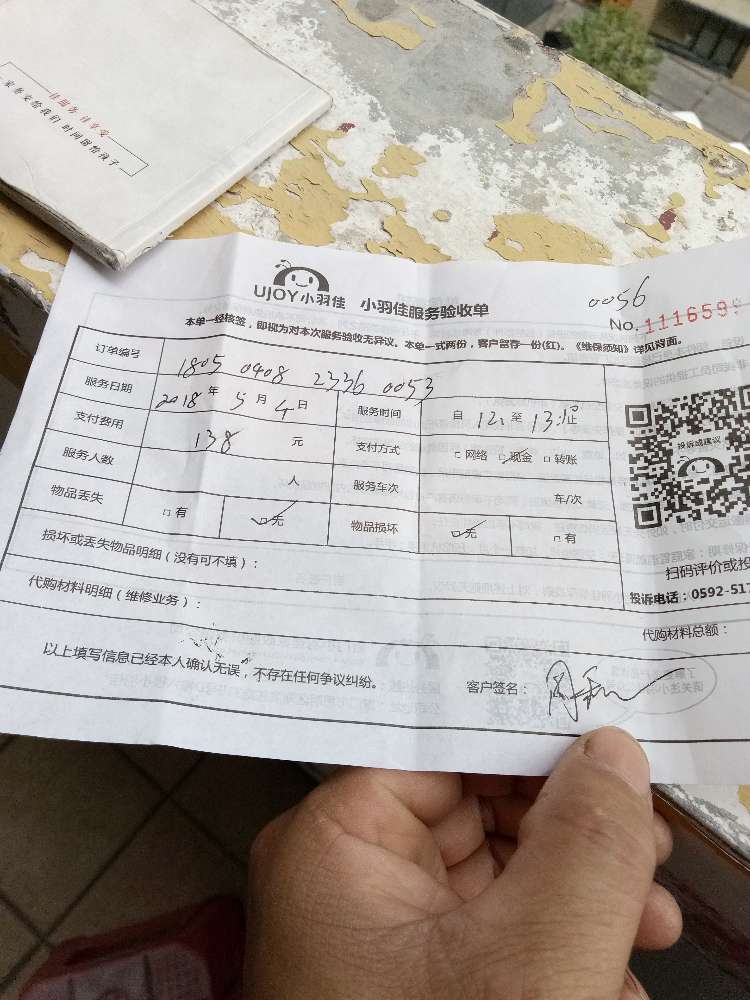 佳服务 佳享受
家务交给我们 时间留给孩子
UJOY小羽佳 小羽佳服务验收单
0056
No. 111659
本单一经核签，即视为对本次服务验收无异议。本单一式两份，客户留存一份(红)。《维保须知》详见背面。
订单编号 1805 0408 2336 0053
服务日期 2018年5月4日 服务时间 自12:至13:止
支付费用 138元 支付方式 □网络 □现金 □转账
服务人数 人 服务车次 车/次
物品丢失 □有 □无 物品损坏 □无 □有
损坏或丢失物品明细(没有可不填)：
代购材料明细(维修业务)：
代购材料总额：
投诉或建议
扫码评价或投
投诉电话：0592-517
以上填写信息已经本人确认无误，不存在任何争议纠纷。 客户签名：